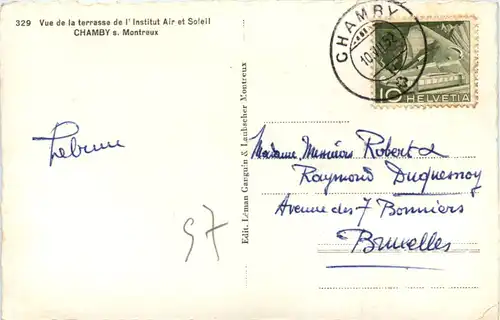 329 Vue de la terrasse de l'Institut Air et Soleil
CHAMBY s. Montreux
CHAMBY
10
HELVETIA
Lebrun
Edit. Léman Garguin & Laubscher Montreux
Madame, Messieurs Robert &
Raymond Duquesnoy
Avenue des 7 Bonniers
Bruxelles
97